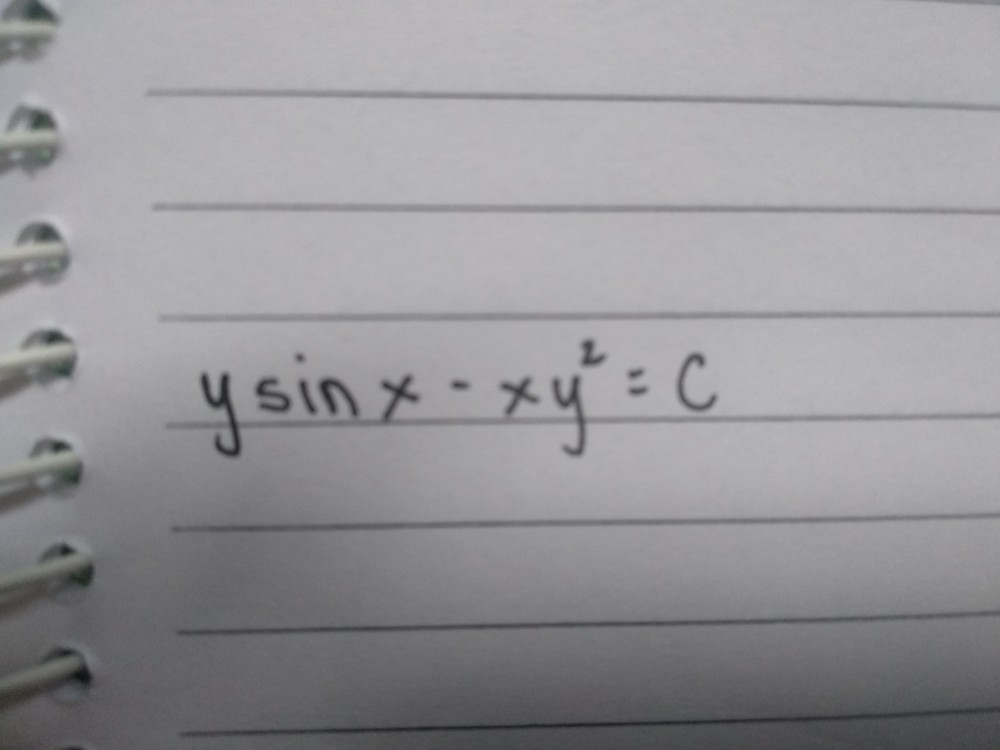 y sin x - xy² = C